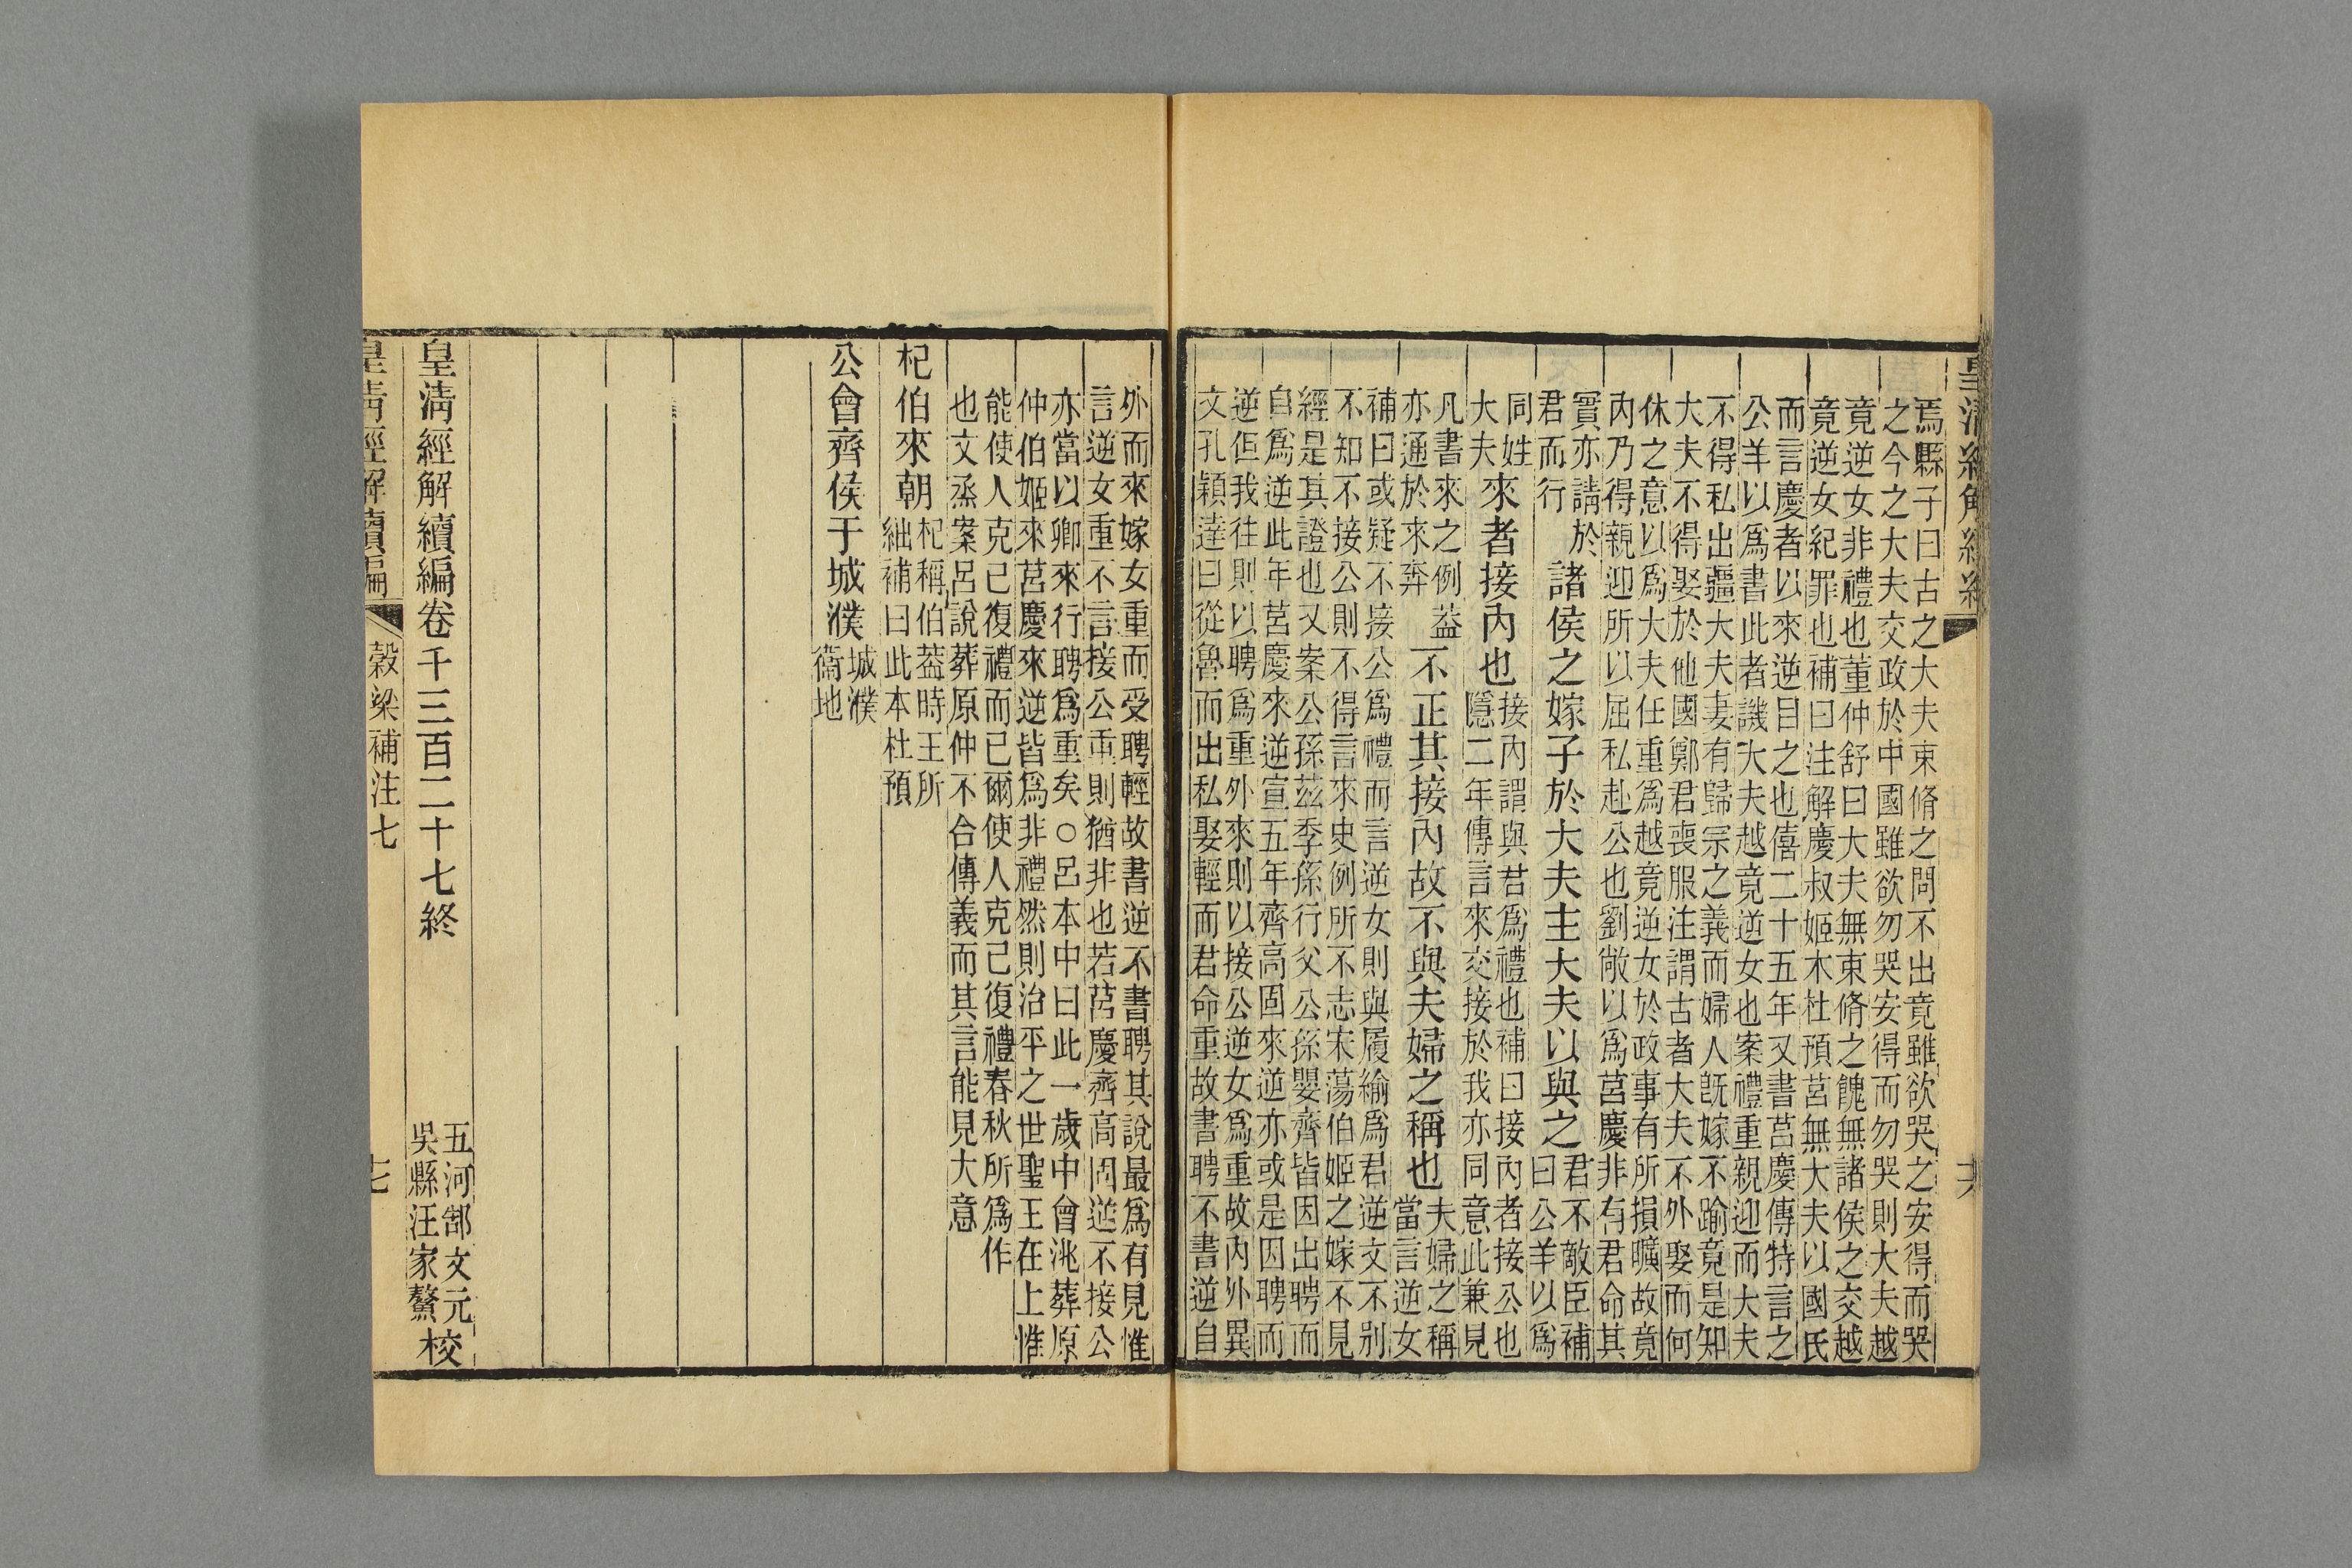 皇清經解續編
焉縣子曰古之大夫束脩之問不出竟雖欲哭之安得而哭
之今之大夫交政於中國雖欲勿哭安得而勿哭則大夫越
竟逆女非禮也董仲舒曰大夫無束脩之餽無諸侯之交越
竟逆女紀罪也補曰注解慶叔姬木杜預莒無大夫以國氏
而言慶者以來逆目之也僖二十五年又書莒慶傳特言之
公羊以爲書此者譏大夫越竟逆女也案禮重親迎而大夫
不得私出疆大夫妻有歸宗之義而婦人旣嫁不踰竟是知
大夫不得娶於他國鄭君喪服注謂古者大夫不外娶而何
休之意以爲大夫任重爲越竟逆女於政事有所損曠故竟
內乃得親迎所以屈私赴公也劉敞以爲莒慶非有君命其
實亦請於
君而行
諸侯之嫁子於大夫主大夫以與之
君不敵臣補
曰公羊以爲
同姓
大夫
來者接內也
接內謂與君爲禮也補曰接內者接公也
隱二年傳言來交接於我亦同意此兼見
凡書來之例蓋
亦通於來奔
不正其接內故不與夫婦之稱也
夫婦之稱
當言逆女
補曰或疑不接公爲禮而言逆女則與履緰爲君逆文不別
不知不接公則不得言來史例所不志宋蕩伯姬之嫁不見
經是其證也又案公孫茲季孫行父公孫嬰齊皆因出聘而
自爲逆此年莒慶來逆宣五年齊高固來逆亦或是因聘而
逆但我往則以聘爲重外來則以接公逆女爲重故內外異
文孔穎達曰從魯而出私娶輕而君命重故書聘不書逆自
外而來嫁女重而受聘輕故書逆不書聘其說最爲有見惟
言逆女重不言接公重則猶非也若莒慶齊高固逆不接公
亦當以卿來行聘爲重矣○呂本中曰此一歲中會洮葬原
仲伯姬來莒慶來逆皆爲非禮然則治平之世聖王在上惟
能使人克己復禮而已爾使人克己復禮春秋所爲作
也文烝案呂說葬原仲不合傳義而其言能見大意
杞伯來朝
杞稱伯蓋時王所
絀補曰此本杜預
公會齊侯于城濮
城濮
衞地
皇清經解續編卷千三百二十七終
五河郜文元
吳縣汪家鰲
校
皇清經解續編
穀梁補注七